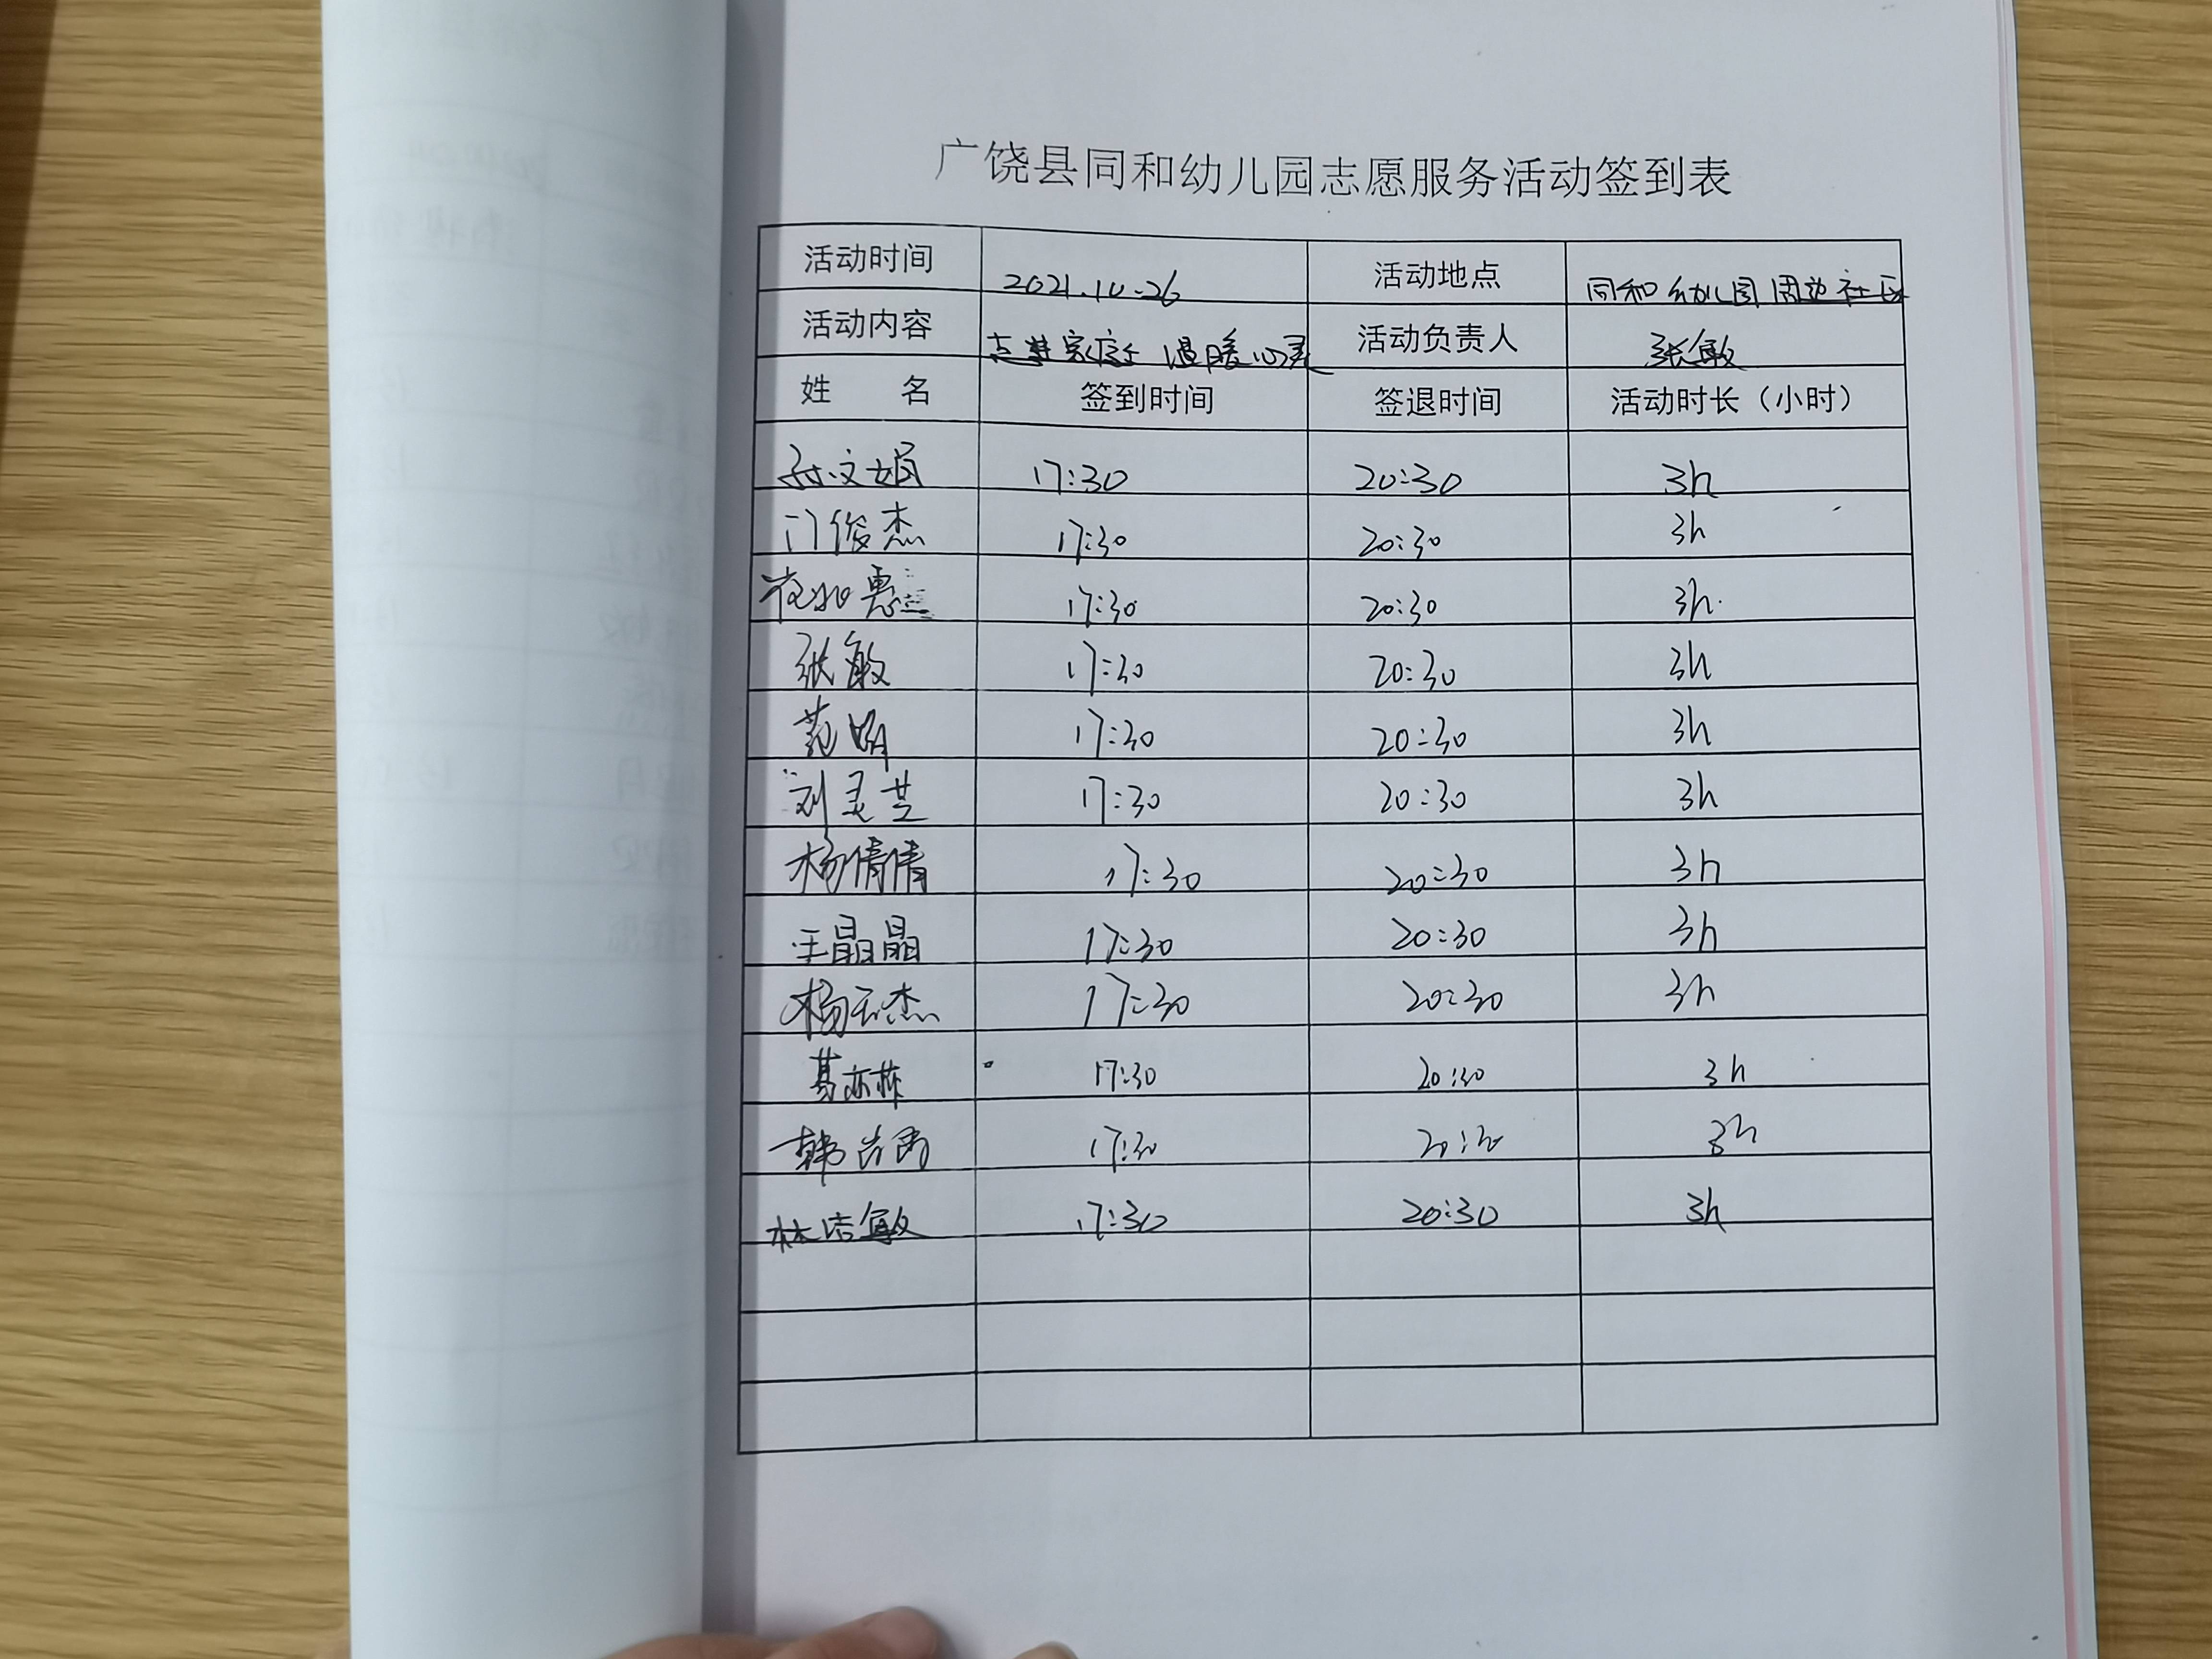 广饶县同和幼儿园志愿服务活动签到表
活动时间 2021.10.26 活动地点 同和幼儿园周边社区
活动内容 走进家庭 温暖心灵 活动负责人 张敏
姓 名 签到时间 签退时间 活动时长（小时）
孙文娟 17:30 20:30 3h
门俊杰 17:30 20:30 3h
17:30 20:30 3h.
张敏 17:30 20:30 3h
范娟 17:30 20:30 3h
刘灵芝 17:30 20:30 3h
杨倩倩 17:30 20:30 3h
王晶晶 17:30 20:30 3h
杨云杰 17:30 20:30 3h
葛亦栋 17:30 20:30 3h
韩 17:30 20:30 3h
林洁敏 17:30 20:30 3h